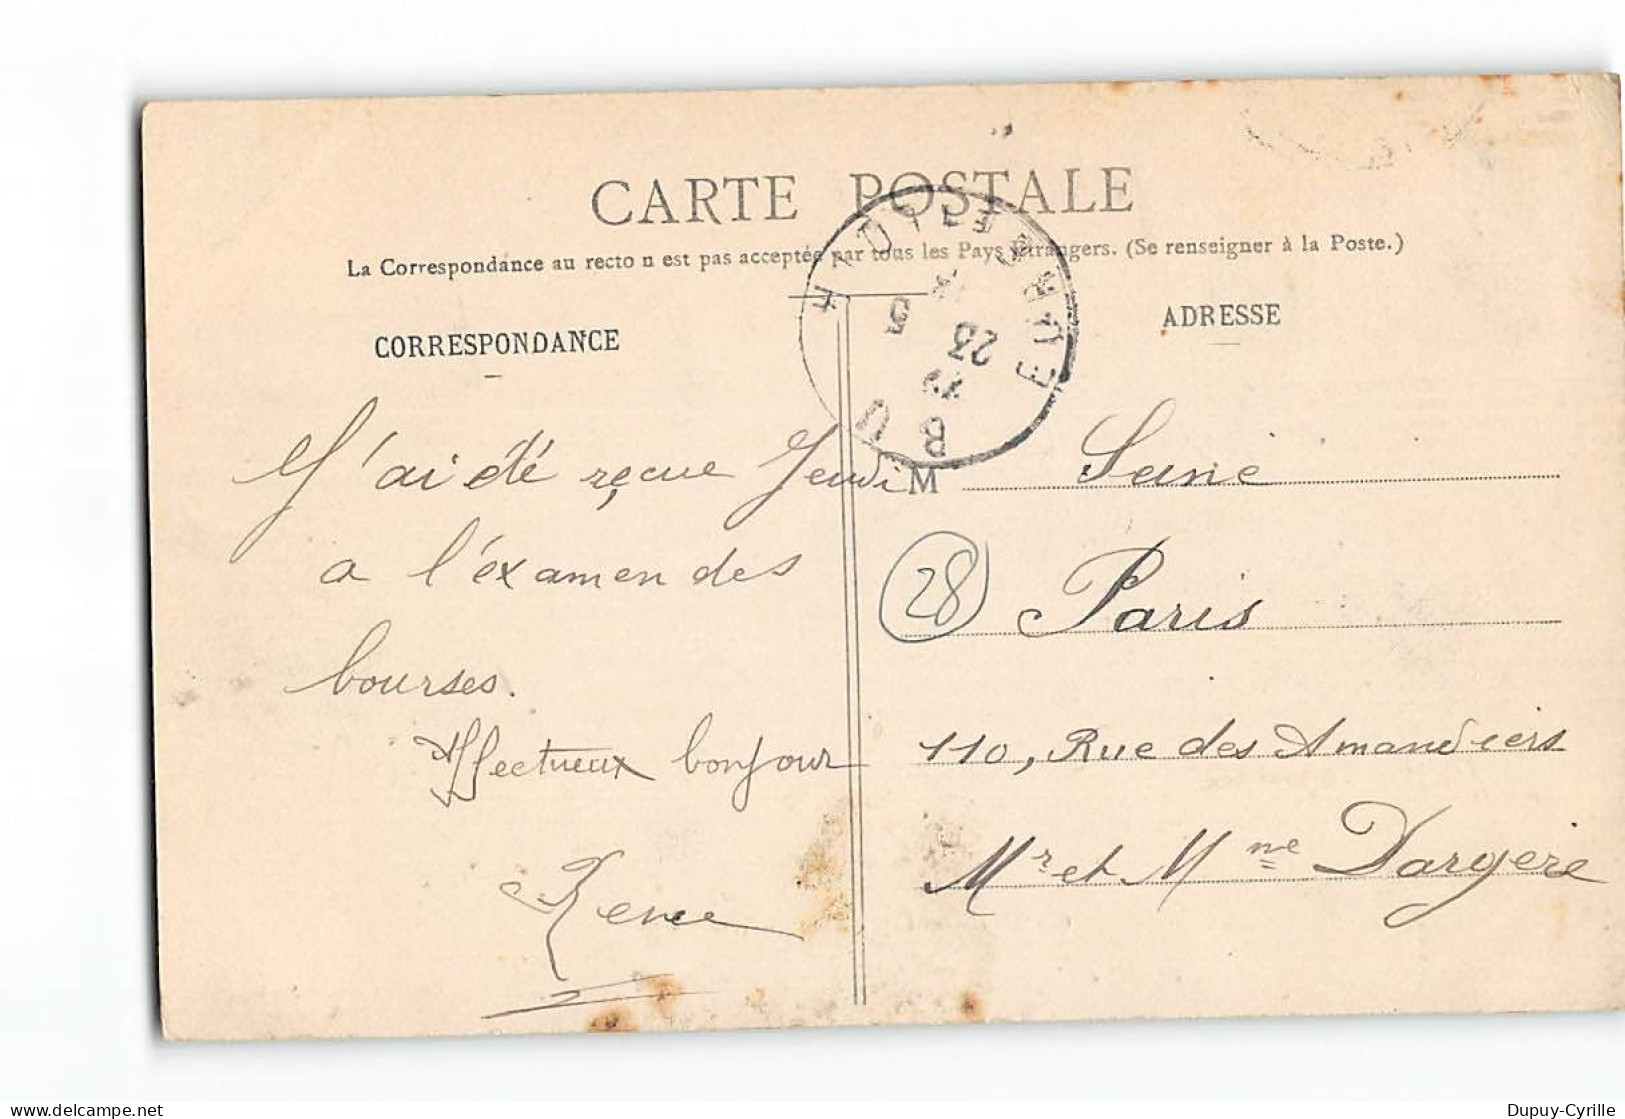 CARTE POSTALE
La Correspondance au recto n est pas acceptée par tous les Pays étrangers. (Se renseigner à la Poste.)
CORRESPONDANCE
ADRESSE
J'ai été reçue Jeudi
a l'éxamen des
bourses.
Affectueux bonjour
Renée
M
Seine
28
Paris
110, Rue des Amandiers
Mr et Mme Dargere
23
Dupuy-Cyrille